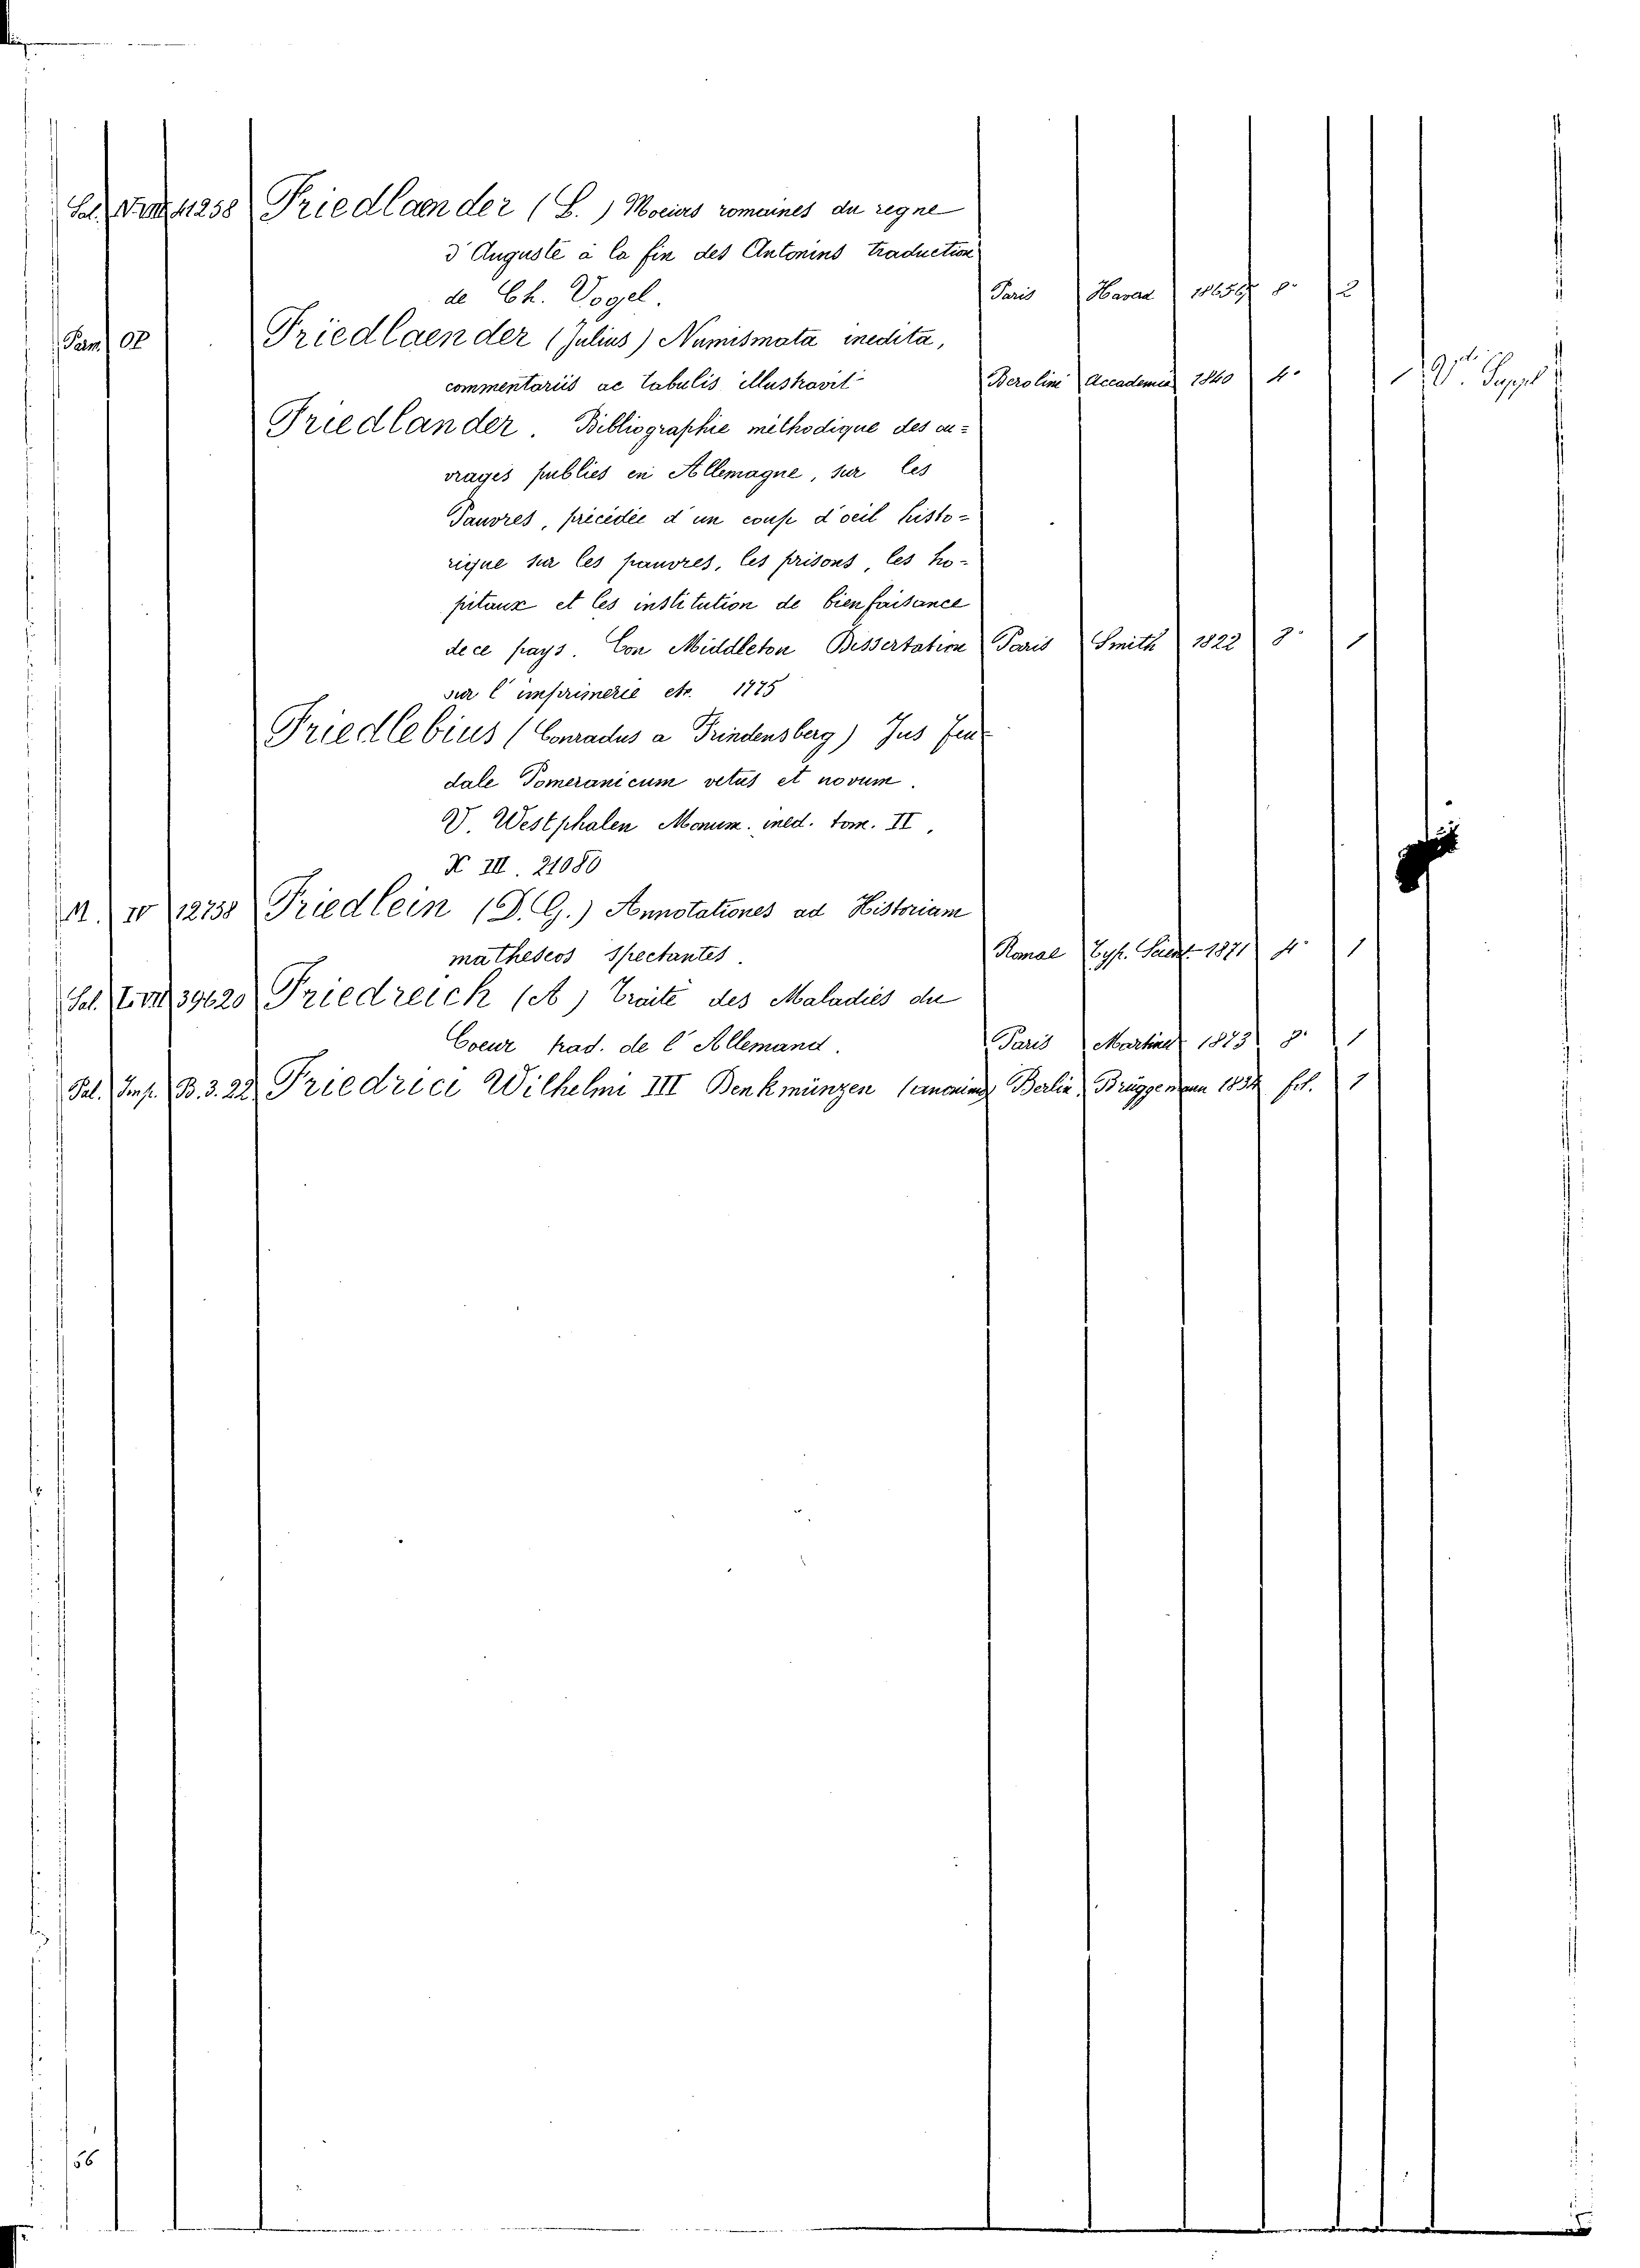 Sal. 41258 Friedlaender (L.) Moeurs romaines du regne
d'Auguste à la fin des Antonins traduction
de Ch. Vogel. Paris 8° 2
Friedlaender (Julius) Numismata inedita,
commentariis ac tabulis illustravit Berolini Accademia 1840 4° 1 V. Suppl
Friedlander. Bibliographie méthodique des ou=
vrages publiés en Allemagne, sur les
Pauvres, précédée d'un coup d'oeil histo=
rique sur les pauvres, les prisons, les ho=
pitaux et les institution de bienfaisance
de ce pays. Con Middleton Dissertation Paris Smith 1822 8° 1
sur l'imprimerie etc. 1775
Friedlebius (Conradus a Frindensberg) Jus feu=
dale Pomeranicum vetus et novum.
V. Westphalen Monum. ined. tom. II,
X III. 21080
M. IV 12738 Friedlein (D. G.) Annotationes ad Historiam
matheseos spectantes. Romae Typ. Scient. 1871 4° 1
Sal. 39620 Friedreich (A) Traité des Maladies du
Coeur trad. de l'Allemand. Paris Martinet 1873 8° 1
Pal. Imp. B. 3. 22 Friedrici Wilhelmi III Denkmünzen (anonimo) Berlin Brüggemann 1834 fol. 1
56